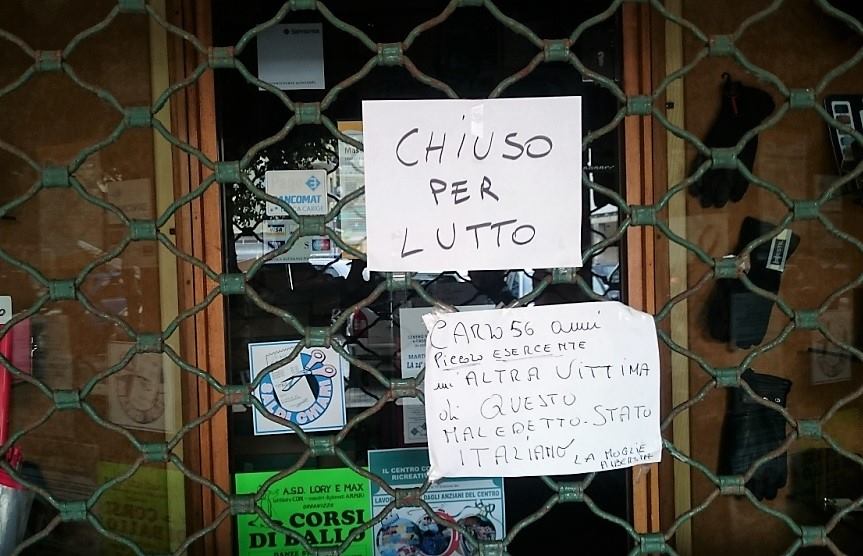 CHIUSO
PER
LUTTO
CARLO 56 anni
PICCOLO ESERCENTE
un'ALTRA VITTIMA
di QUESTO
MALEDETTO STATO
ITALIANO
LA MOGLIE
BANCOMAT
BANCA CARIGE
A.S.D. LORY E MAX
ORGANIZZA
CORSI
DI BALLO
IL CENTRO
RICREATIV
DAGLI ANZIANI DEL CENTRO